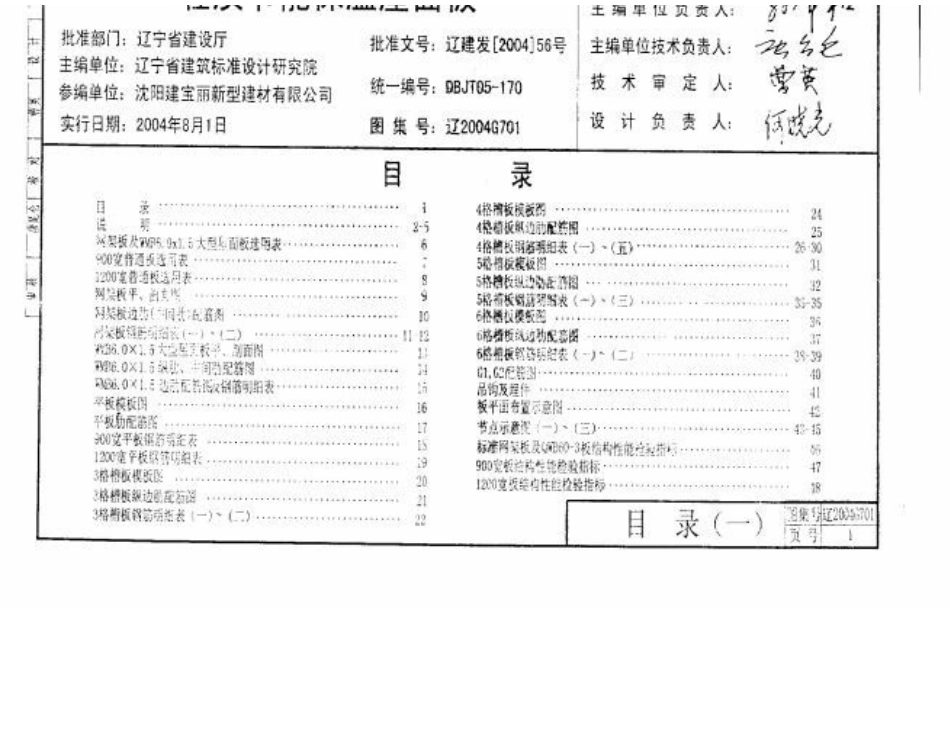 轻质节能保温屋面板
批准部门：辽宁省建设厅
主编单位：辽宁省建筑标准设计研究院
参编单位：沈阳建宝丽新型建材有限公司
实行日期：2004年8月1日
批准文号：辽建发[2004]56号
统一编号：DBJT05-170
图 集 号：辽2004G701
主编单位负责人：
主编单位技术负责人：
技 术 审 定 人：
设 计 负 责 人：
目 录
目 录 1
说 明 2-5
网架板及WMB6.0x1.5大型屋面板选用表 6
900宽普通板选用表 7
1200宽普通板选用表 8
网架板平、剖面图 9
网架板边肋(中间肋)配筋图 10
网架板钢筋明细表(一)~(二) 11-12
WMB6.0×1.5大型屋面板平、剖面图 13
WMB6.0×1.5纵肋、中间肋配筋图 14
WMB6.0×1.5边肋配筋图及钢筋明细表 15
平板模板图 16
平板肋配筋图 17
900宽平板钢筋明细表 18
1200宽平板钢筋明细表 19
3格槽板模板图 20
3格槽板纵边肋配筋图 21
3格槽板钢筋明细表(一)~(二) 22
4格槽板模板图 24
4格槽板纵边肋配筋图 25
4格槽板钢筋明细表(一)~(五) 26-30
5格槽板模板图 31
5格槽板纵边肋配筋图 32
5格槽板钢筋明细表(一)~(三) 33-35
6格槽板模板图 36
6格槽板纵边肋配筋图 37
6格槽板钢筋明细表(一)~(二) 38-39
G1,G2配筋图 40
吊钩及埋件 41
板平面布置示意图 42
节点示意图(一)~(三) 43-45
标准网架板及QWB60-3板结构性能检验指标 46
900宽板结构性能检验指标 47
1200宽板结构性能检验指标 48
目 录(一)
图集号 辽2004G701
页 号 1